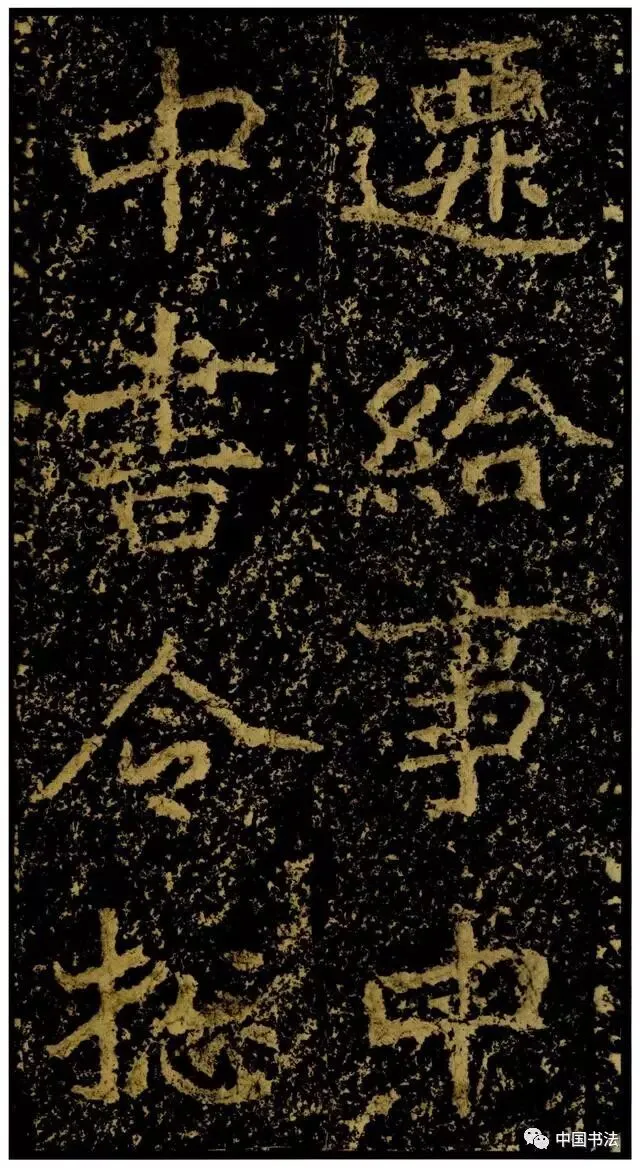 遷給事中
中書令揔
中国书法